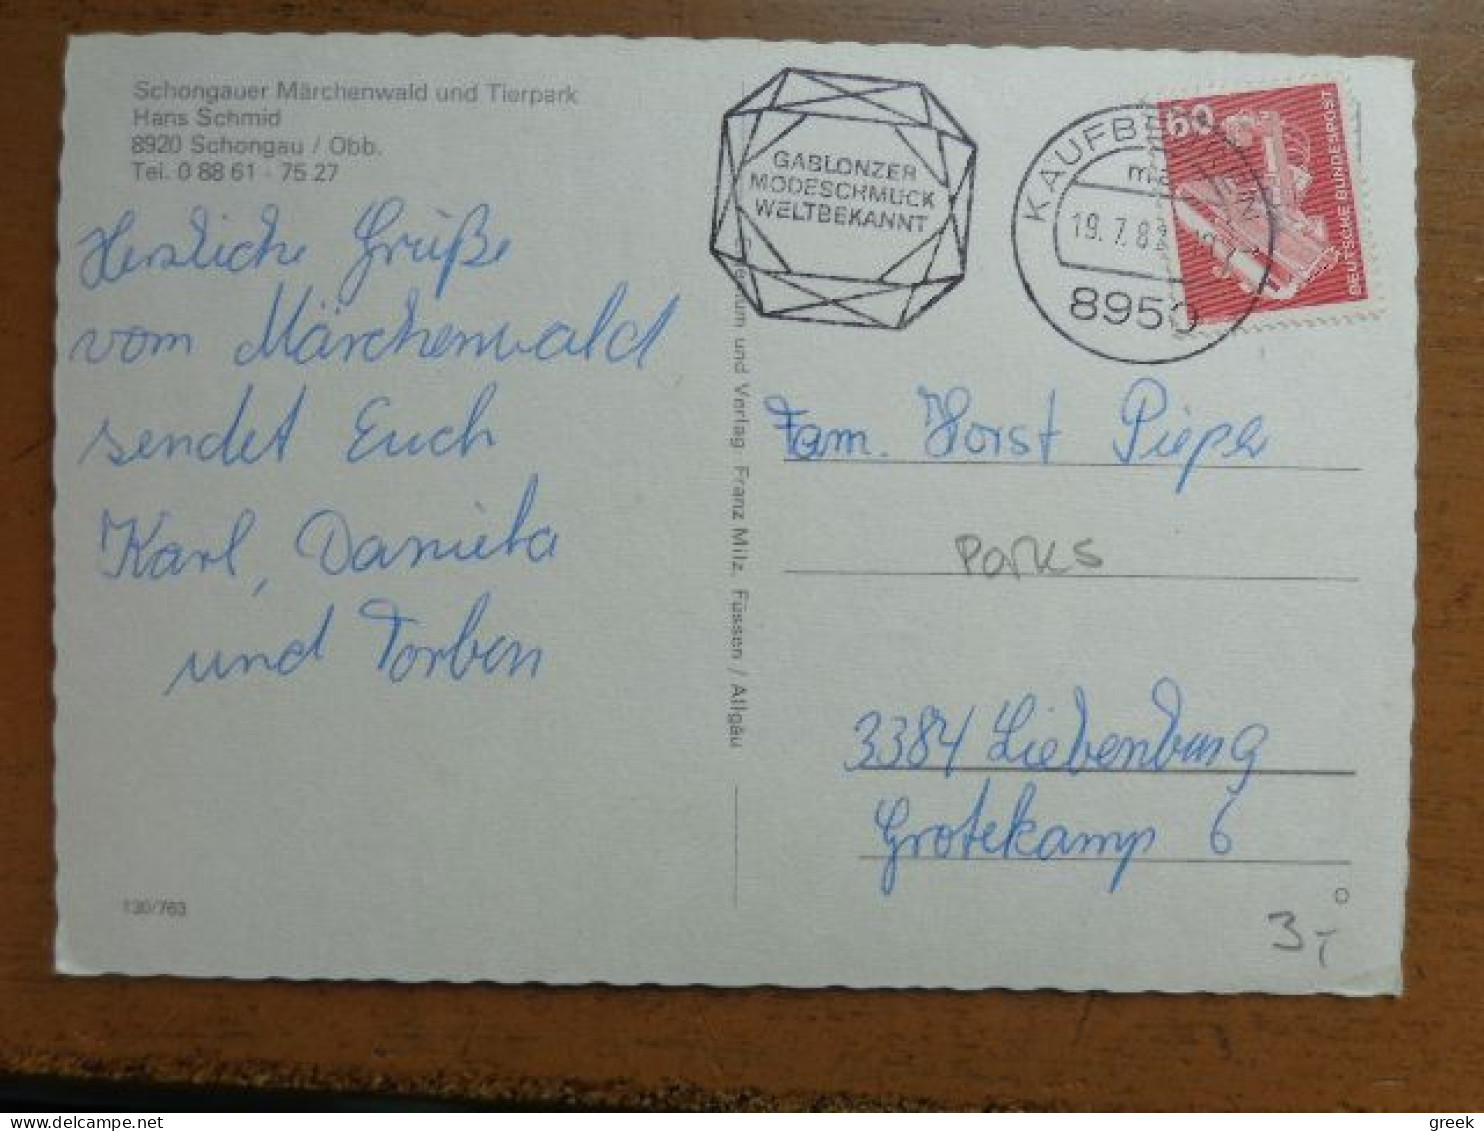 Schongauer Märchenwald und Tierpark
Hans Schmid
8920 Schongau / Obb.
Tel. 0 88 61 - 75 27
Herzliche Grüße
vom Märchenwald
sendet Euch
Karl, Daniela
und Torben
130/763
und Verlag Franz Milz, Füssen / Allgäu
GABLONZER
MODESCHMUCK
WELTBEKANNT
KAUFBEUREN
19.7.82
8950
60
DEUTSCHE BUNDESPOST
Fam. Horst Pieper
Parks
3384 Liebenburg
Grotekamp 6
3,-
greek